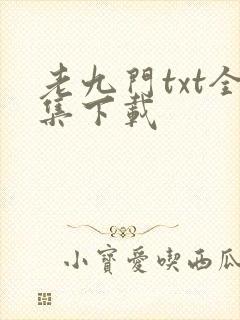 老九門txt全
集下載
小寶愛喫西瓜